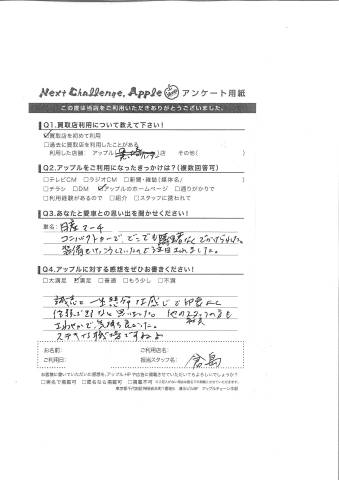 Next Challenge, Apple アンケート用紙
この度は当店をご利用いただきありがとうございました。
Q1.買取店利用について教えて下さい!
☑買取店を初めて利用
□過去に買取店を利用したことがある
利用した店舗: アップル( )店 その他( )
Q2.アップルをご利用になったきっかけは?(複数回答可)
□テレビCM □ラジオCM □新聞・雑誌(媒体名/ )
□チラシ □DM ☑アップルのホームページ □通りがかりで
□利用経験があるので □紹介 □スタッフに誘われて
Q3.あなたと愛車との思い出を聞かせください!
車名: 日産マーチ
コンパクトカーで、どこでも
Q4.アップルに対する感想をぜひお書きください!
□大満足 ☑満足 □普通 □もう少し □不満
誠意と一生懸命な感じで印象よく
他のスタッフの方も
さわやかで、気持ち良かった。
ステキな職場ですねよ
お名前: ご利用店名:
ご利用日: 担当スタッフ名:
お客様に書いていただいた感想を、アップルHPや店舗に掲載させていただいてもよろしいでしょうか?
□実名で掲載可 □匿名なら掲載可 □掲載不可